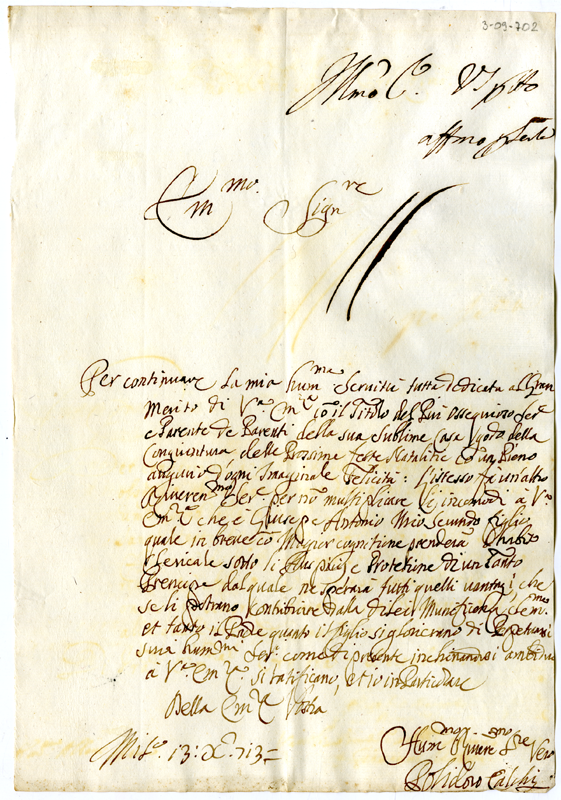 3-09-702
Illmo
affmo
Em.mo Sign.re
Per continuare la mia hum.ma servitù tutta dedicata al Gran
Merito di V.ra Em.za cõ il Titolo del Più ossequioso Ser.e
e Parente de Parenti della sua sublime Casa godo della
Congiuntura delle Prossime feste Natalitie cõ un Pieno
augurio d'ogni Imaginale Felicità: l'istesso fà un'altro
Ser.e per nõ multiplicare li incomodi a V.ra
Em.za che è Giuseppe Antonio Mio secundo figlio
quale in breve cõ Magior cognitione prenderà l'habito
Clericale sotto li Auspicii e Protetione di un Tanto
Prencipe dal quale ne sperarà tutti quelli vantagi che
se li potrano contribuire dalla di lei Munificenza
et tanto il Padre quanto il figlio si glorierano di
suoi Ser.i come di presente inchinandosi
à V.ra Em.za si ratificano, et io in Particulare
Della Em.za Vostra
Mil.o 13: 713
Hum.mo Ser.re Vero
Polidoro Calchi